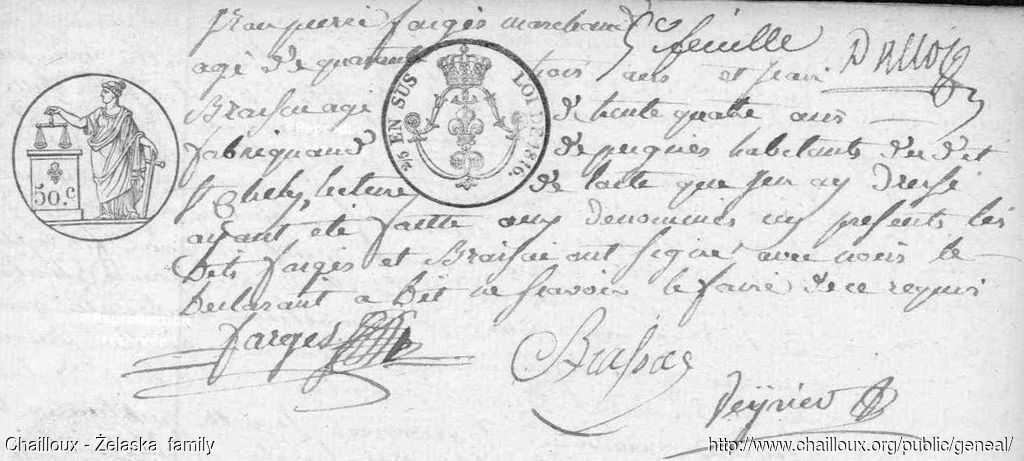 jean pierre fargés marchand
5e feuille
agé de quarante trois ans et jean
Braissac agé de trente quatre ans
fabriquand de peignes habitants du dit
St Chely, lecture de lacte que jen ay dressé
ayant été faitte aux denommés cy presents les
dits farges et Braissac ont signé avec nous le
declarant a dit ne scavoir le faire de ce requis
farges
Veyrier
50.c
EN SUS
LOI DE 1816.
@Reproduction
Chailloux - Żelaska family
http://www.chailloux.org/public/geneal/